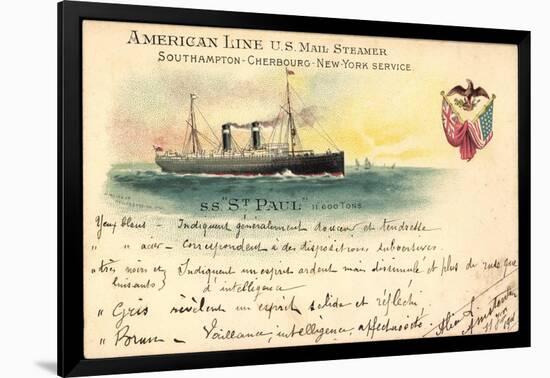 AMERICAN LINE U.S. MAIL STEAMER
SOUTHAMPTON-CHERBOURG-NEW-YORK SERVICE.
S.S. "ST PAUL" 11,600 TONS.
Yeux bleus - Indiquent généralement douceur et tendresse
" " acier - Correspondent à des dispositions subversives.
" très noirs et Indiquent un esprit ardent mais dissimulé et plus de ruse que
luisants d'intelligence
" Gris révèlent un esprit solide et réfléchi
" Bruns - Vaillance, intelligence, affectuosité.